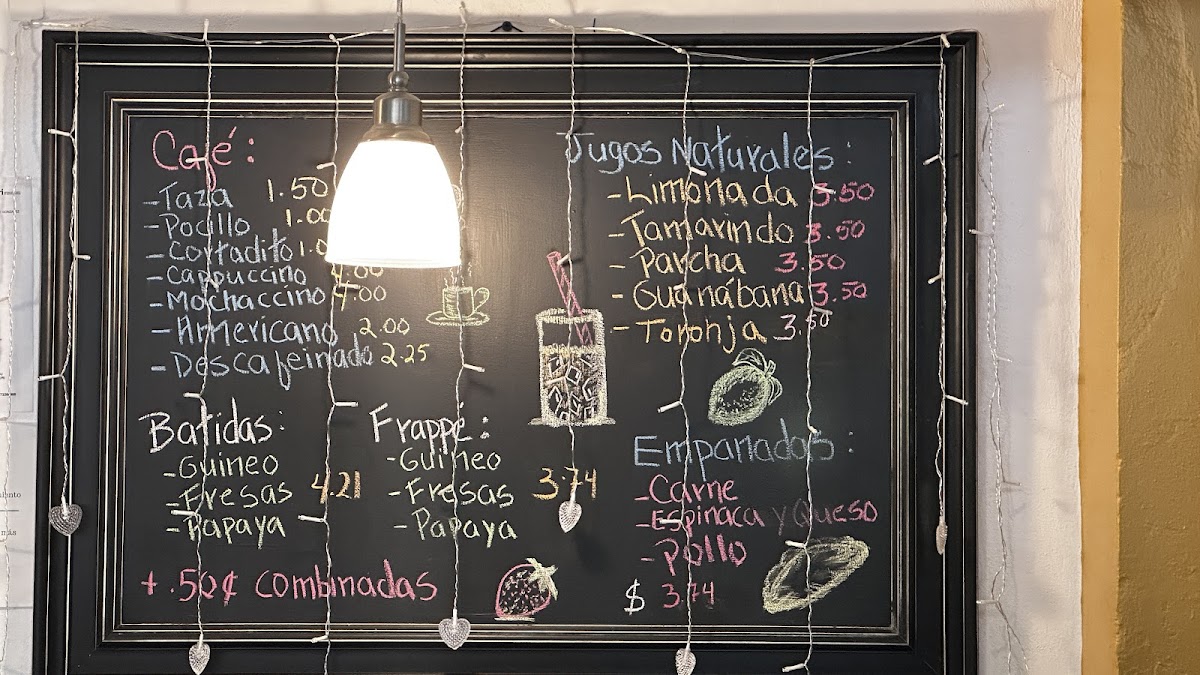 Café:
-Taza 1.50
-Pocillo 1.00
-Cortadito 1.0
-Cappuccino 4.00
-Mochaccino 4.00
-Americano 2.00
-Descafeinado 2.25
Batidas:
-Guineo
-Fresas 4.21
-Papaya
Frappé:
-Guineo
-Fresas 3.74
-Papaya
+.50¢ combinadas
Jugos Naturales:
-Limonada 3.50
-Tamarindo 3.50
-Parcha 3.50
-Guanábana 3.50
-Toronja 3.50
Empanadas:
-Carne
-Espinaca y Queso
-Pollo
$ 3.74